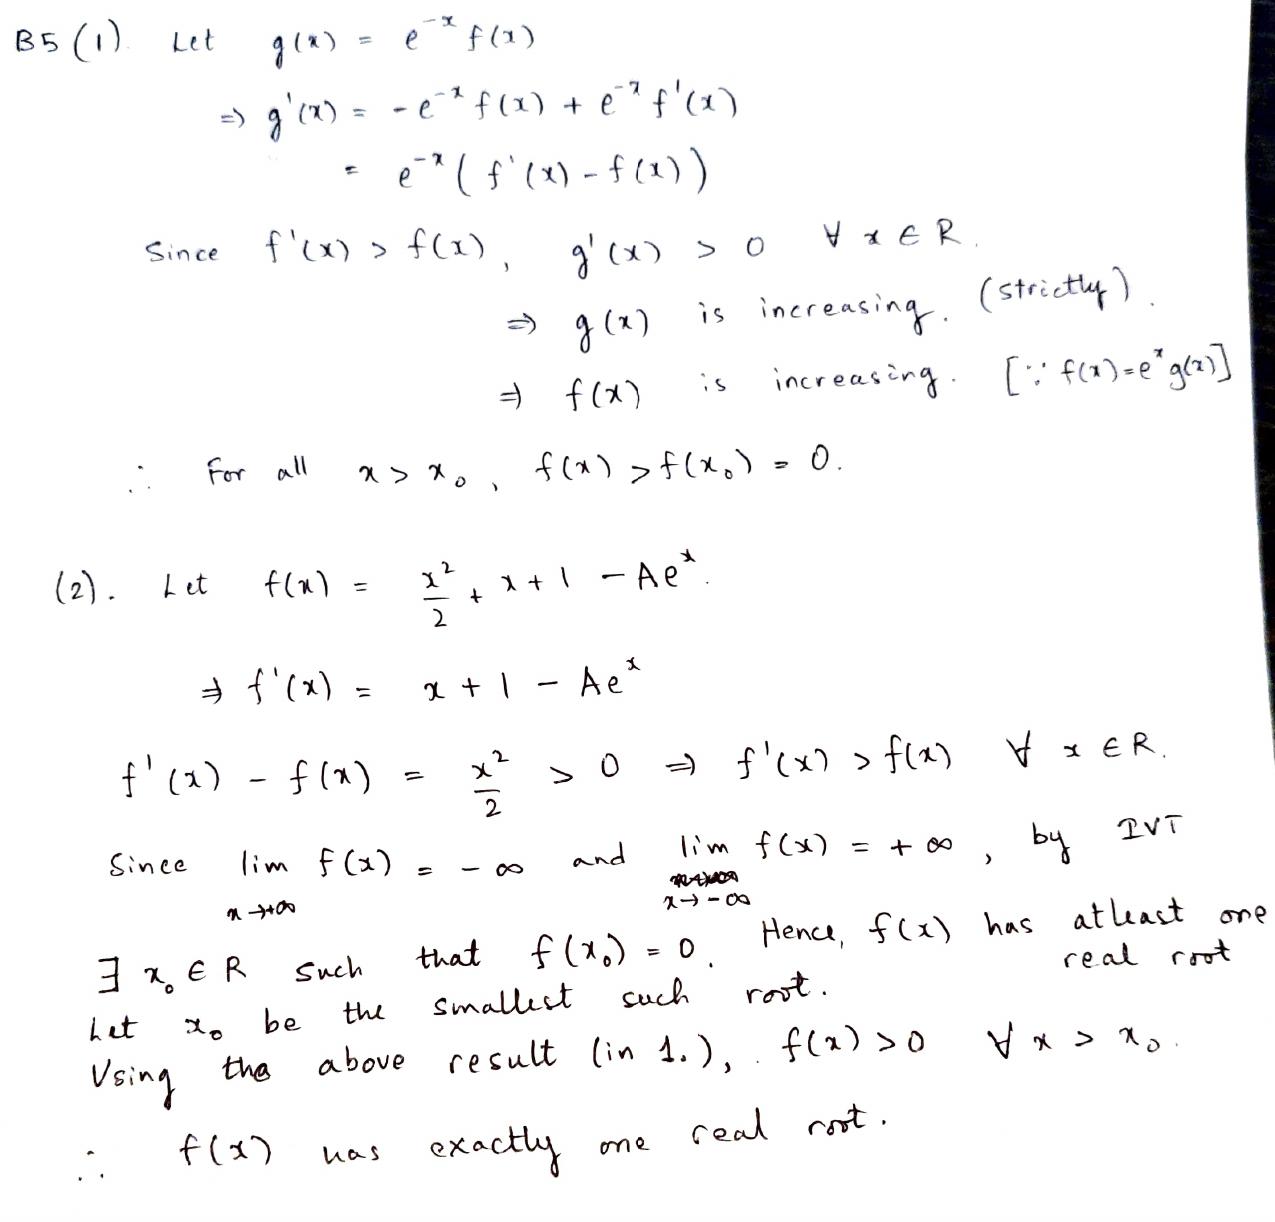 B5 (1). Let g(x) = e^{-x} f(x)
⇒ g'(x) = -e^{-x} f(x) + e^{-x} f'(x)
= e^{-x} ( f'(x) - f(x) )
Since f'(x) > f(x), g'(x) > 0 ∀ x ∈ R.
⇒ g(x) is increasing. (strictly).
⇒ f(x) is increasing. [∵ f(x) = e^x g(x)]
∴ For all x > x₀, f(x) > f(x₀) = 0.
(2). Let f(x) = x²/2 + x + 1 - Ae^x.
⇒ f'(x) = x + 1 - Ae^x
f'(x) - f(x) = x²/2 > 0 ⇒ f'(x) > f(x) ∀ x ∈ R.
Since lim_{x→+∞} f(x) = -∞ and lim_{x→-∞} f(x) = +∞, by IVT
∃ x₀ ∈ R such that f(x₀) = 0. Hence, f(x) has atleast one real root
Let x₀ be the smallest such root.
Using the above result (in 1.), f(x) > 0 ∀ x > x₀.
∴ f(x) has exactly one real root.